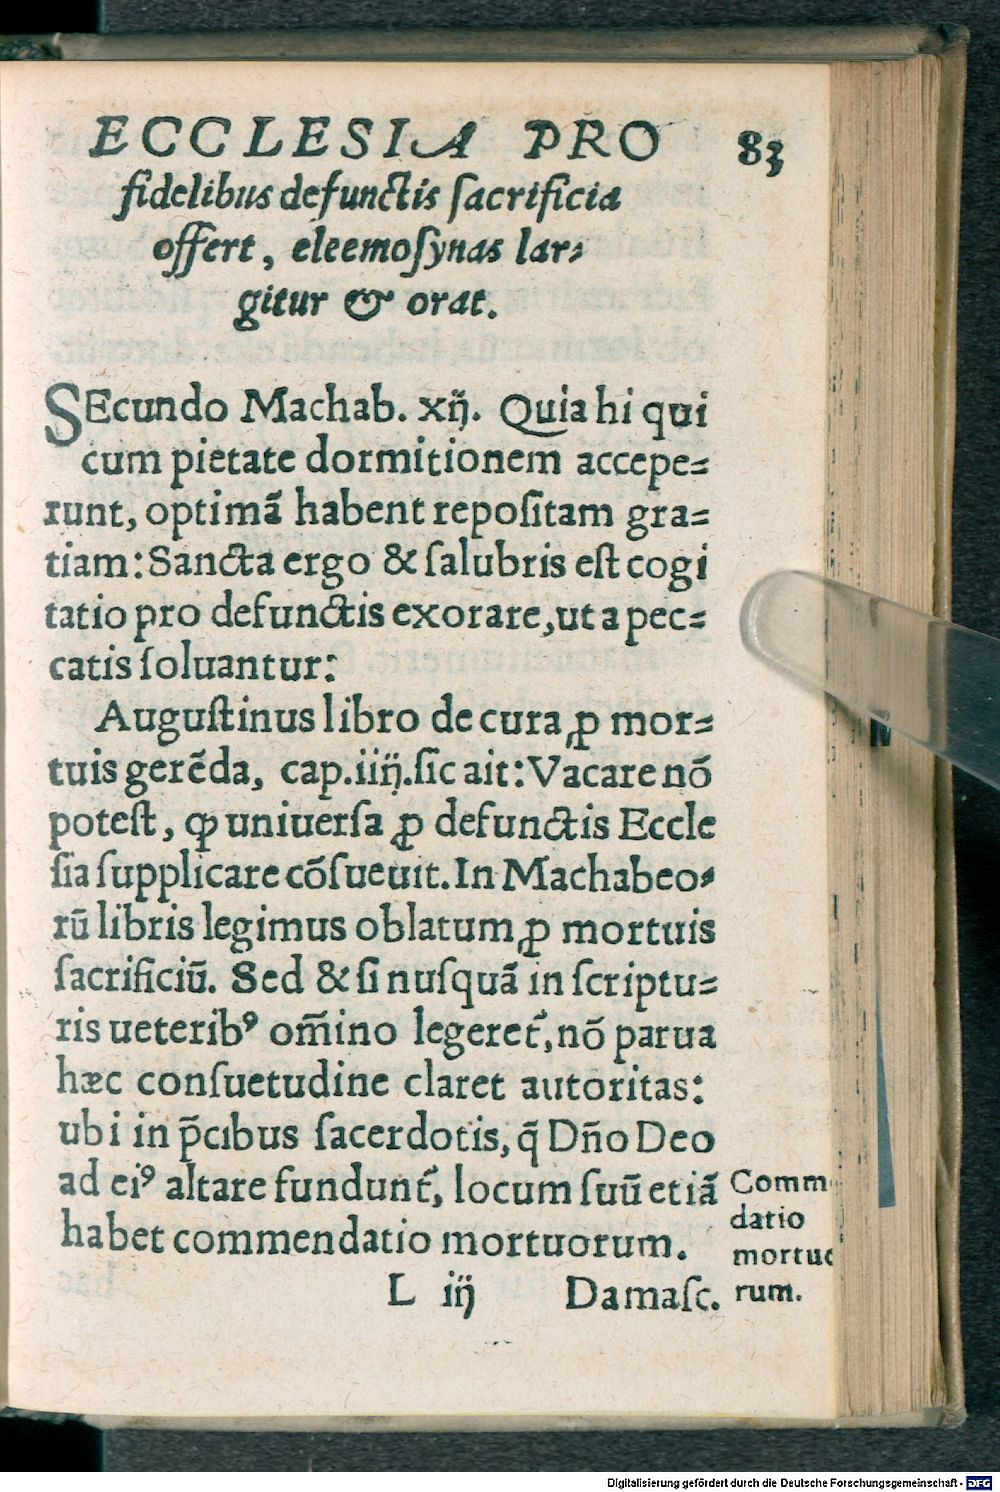 ECCLESIA PRO 83
fidelibus defunctis ſacrificia
offert, eleemoſynas lar⸗
gitur & orat.
SEcundo Machab. xij. Quia hi qui
cum pietate dormitionem accepe⸗
runt, optimã habent repoſitam gra⸗
tiam: Sancta ergo & ſalubris eſt cogi
tatio pro defunctis exorare, ut a pec⸗
catis ſoluantur:
Auguſtinus libro de cura ꝓ mor⸗
tuis gerẽda, cap. iiij. ſic ait: Vacare nõ
poteſt, ꝙ uniuerſa ꝓ defunctis Eccle
ſia ſupplicare cõſueuit. In Machabeo⸗
rũ libris legimus oblatum ꝓ mortuis
ſacrificiũ. Sed & ſi nuſquã in ſcriptu⸗
ris ueteribꝰ om̃ino legeret᷑, nõ parua
hæc conſuetudine claret autoritas:
ubi in p̃cibus ſacerdotis, q̃ Dño Deo
ad eiꝰ altare fundunt᷑, locum ſuũ etiã
habet commendatio mortuorum.
Comm
datio
mortuo
rum.
L iij Damaſc.
Digitalisierung gefördert durch die Deutsche Forschungsgemeinschaft - DFG